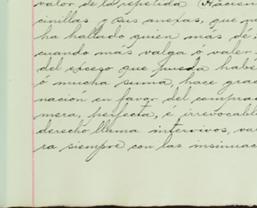 valor de la repetida Hacien
cinllas y sus anexas, que no
ha hallado quien más dé
cuando más valga ó valer
del exceso que pueda habe
ó mucha suma, hace grac
nación en favor del compra
mera, perfecta, é irrevocabl
derecho llama intervivos, va
ra siempre con las insinuac